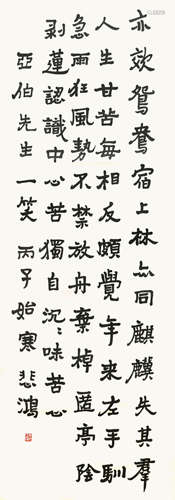 亦效鴛鴦宿上林亦同麒麟失其羣
人生甘苦每相反頗覺年來左手馴
急雨狂風勢不禁放舟棄棹匿亭陰
剥蓮認識中心苦獨自沉沉味苦心
亞伯先生一笑 丙子始寒悲鴻